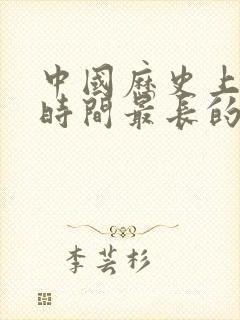 中國歷史上
時間最長的
李芸杉